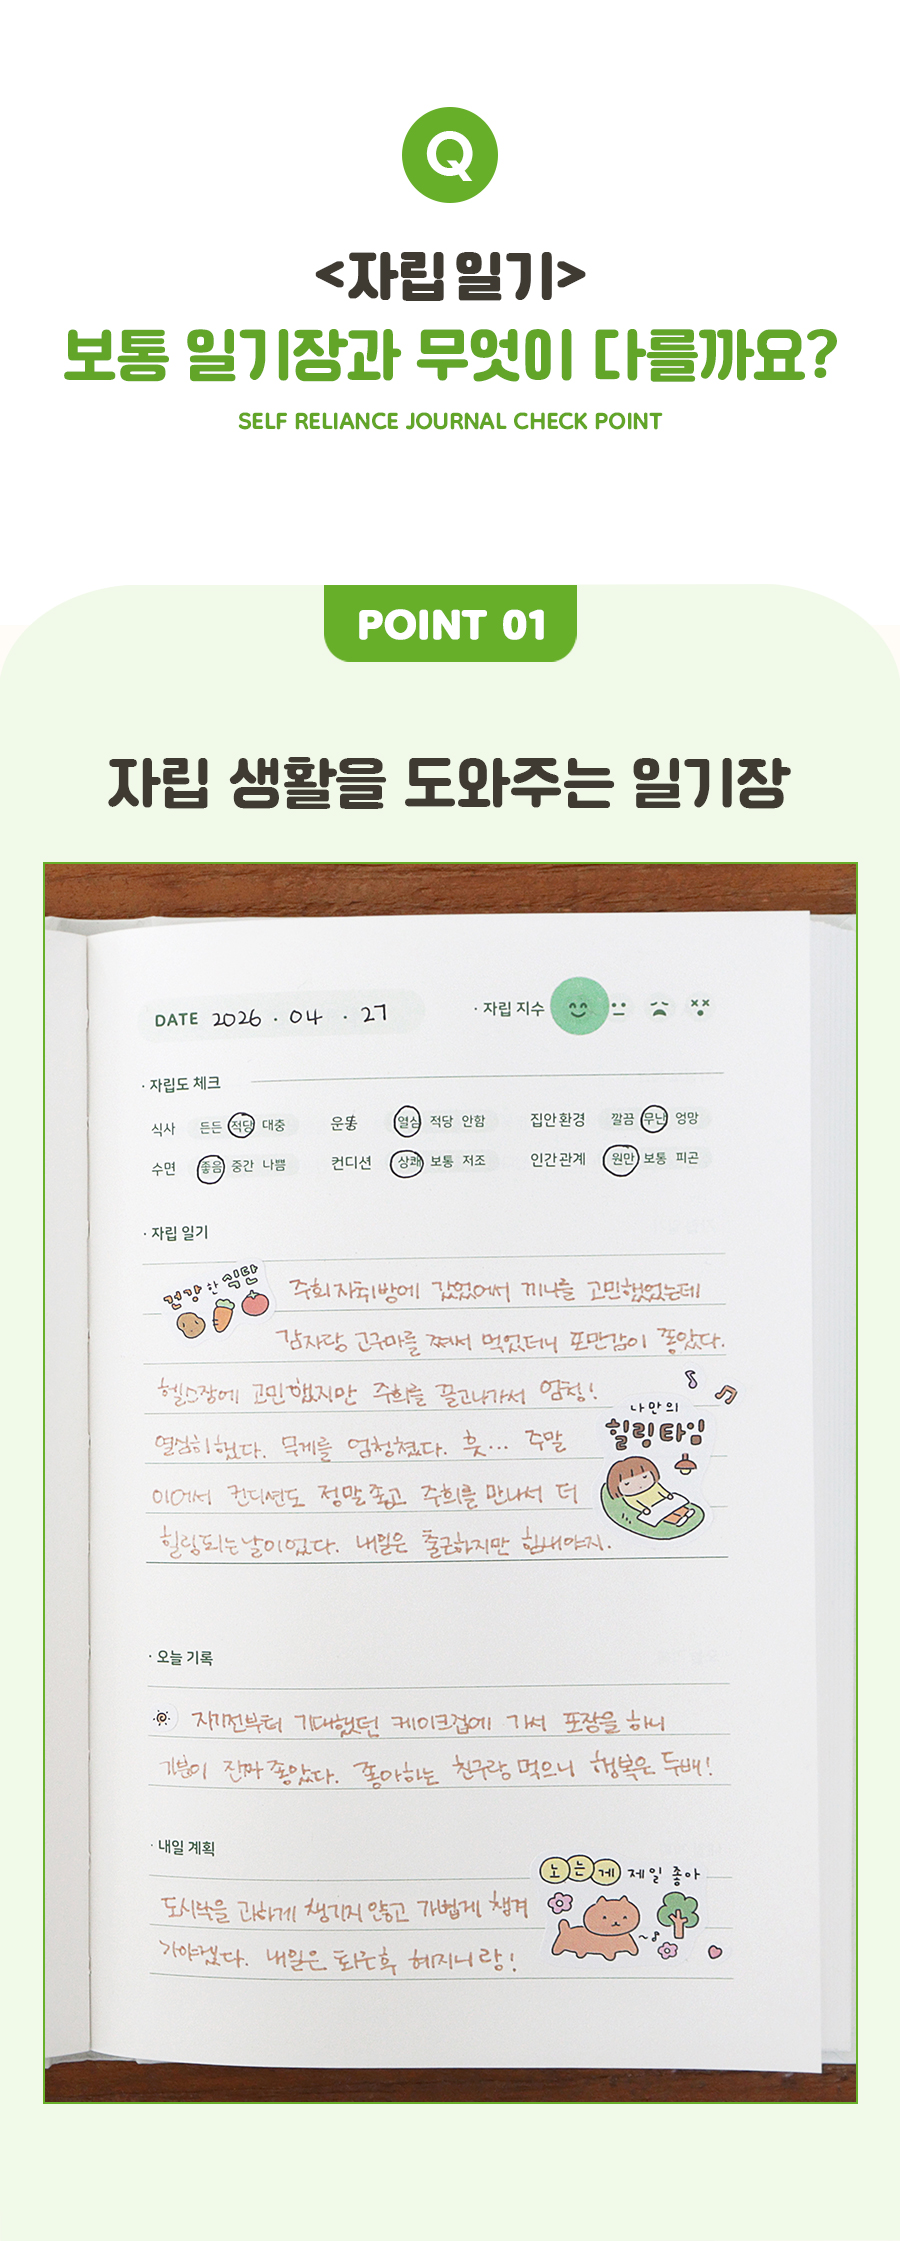 Q
<자립 일기>
보통 일기장과 무엇이 다를까요?
SELF RELIANCE JOURNAL CHECK POINT
POINT 01
자립 생활을 도와주는 일기장
DATE 2026 . 04 . 27
· 자립 지수
· 자립도 체크
식사 든든 적당 대충 운동 열심 적당 안함 집안환경 깔끔 무난 엉망
수면 좋음 중간 나쁨 컨디션 상쾌 보통 저조 인간관계 원만 보통 피곤
· 자립 일기
건강한 식단
주희 자취방에 갔었어서 끼니를 고민했었는데
감자랑 고구마를 쪄서 먹었더니 포만감이 좋았다.
헬스장에 고민했지만 주희를 끌고나가서 엄청!
나만의
힐링타임
열심히 했다. 무게를 엄청쳤다. 훗... 주말
이어서 컨디션도 정말 좋고 주희를 만나서 더
힐링되는 날이었다. 내일은 출근하지만 힘내야지.
· 오늘 기록
자기전부터 기대했던 케이크집에 가서 포장을 하니
기분이 진짜 좋았다. 좋아하는 친구랑 먹으니 행복은 두배!
· 내일 계획
노는게 제일 좋아
도시락을 과하게 챙기지 않고 가볍게 챙겨
가야겠다. 내일은 퇴근후 혜지니랑!